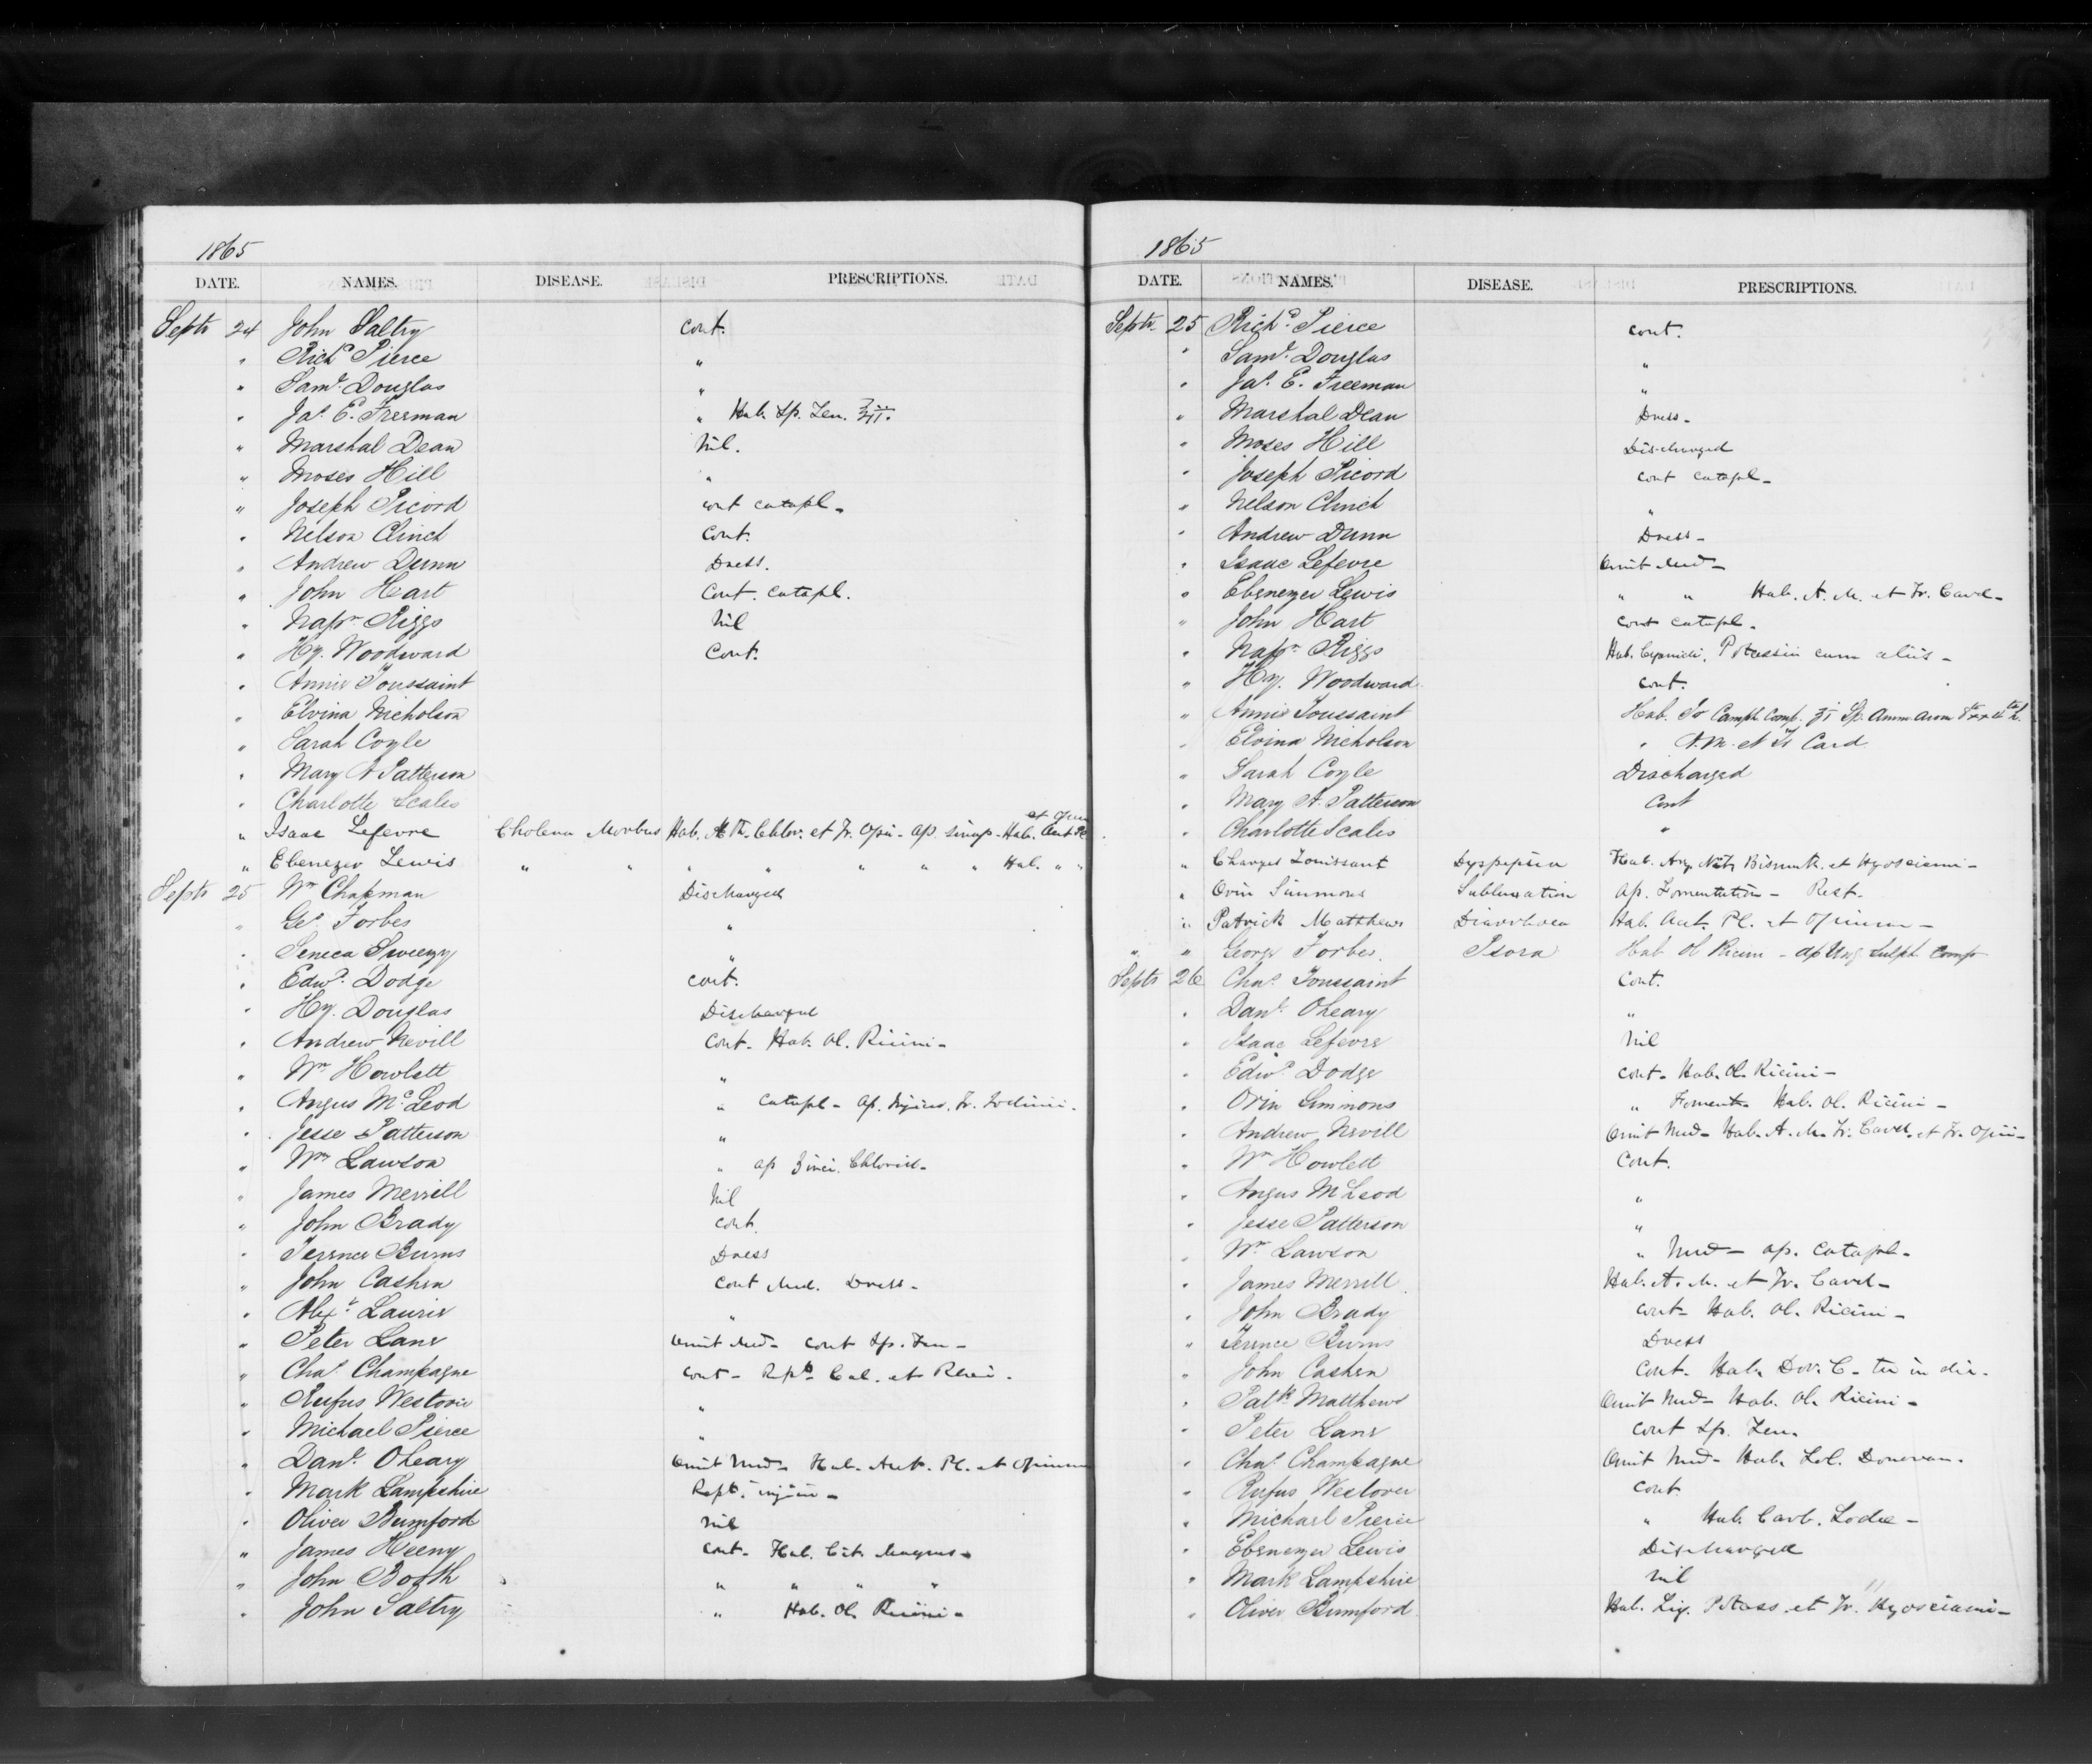 1865
DATE. NAMES. DISEASE. PRESCRIPTIONS.
Septr 24 John Saltry cont.
" Richd Pierce "
" Saml. Douglas "
" Jas. E. Freeman " Hab. Sp. Len.
" Marshal Dean Nil.
" Moses Hill "
" Joseph Picord cont catapl-
" Nelson Clinch Cont.
" Andrew Dunn Dress.
" John Heart Cont. catapl.
" Napn Riggs Nil
" Hy. Woodward Cont.
" Annie Toussaint
" Elvina Nicholson
" Sarah Coyle
" Mary A Patterson
" Charlotte Scales
" Isaac Lefevre Cholera Morbus Hab. Chlor. et Tr. Opii - ap. sinap - Hab.
" Ebenezer Lewis " " " " " " " Hab. " "
Septr 25 Wm Chapman Discharged
" Geo Forbes "
" Seneca Sweezy "
" Edwd. Dodge cont.
" Hy. Douglas Discharged
" Andrew Nevill Cont- Hab. Ol. Ricini-
" Wm Howlett "
" Angus McLeod " Catapl- ap.
" Jesse Patterson "
" Wm Lawson " ap Zinci. Chlorid-
" James Merrill Nil
" John Brady cont.
" Terence Burns Dress
" John Cashen Cont Med. Dress-
" Alexr. Laurie "
" Peter Lane Omit Med- cont Sp. Len-
" Chas. Champagne cont- Rept Cal. et Rhei.
" Rufus Westover "
" Michael Pierce "
" Danl. Oleary Omit Med- Hab. Acet. Pl. et Opium
" Mark Lampshire Rept. injec-
" Oliver Bumford Nil
" James Heeny cont- Hab. Cit. Magnes-
" John Booth " " " "
" John Saltry " Hab. Ol. Ricini-
1865
DATE. NAMES. DISEASE. PRESCRIPTIONS.
Septr. 25 Richd. Pierce cont.
" Saml. Douglas "
" Jas. E. Freeman "
" Marshal Dean Dress-
" Moses Hill Discharged
" Joseph Picord cont catapl-
" Nelson Clinch "
" Andrew Dunn Dress-
" Isaac Lefevre Omit Med-
" Ebenezer Lewis " " Hab. A. M. et Tr. Card-
" John Hart Cont catapl-
" Napn Riggs Hab. Cyanidi. Potassii cum aliis-
" Hy. Woodward cont.
" Annie Toussaint Hab. Tr Camph Comp. Sp. Amm Arom
" Elvina Nicholson " A.M. et Tr Card
" Sarah Coyle Discharged
" Mary A. Patterson Cont
" Charlotte Scales "
" Charges Touissant Dyspepsia Hab. Arg Nit, Bismuth. et Hyosciami-
" Orin Simmons Subluxation Ap. Fomentation- Rest-
" Patrick Matthews Diarrhoea Hab. Acet. Pl. et Opium-
" " George Forbes. Psora Hab Ol Ricini - Ap Ung Sulph Comp
Septr 26 Chas. Toussaint Cont.
" Danl. Oleary "
" Isaac Lefevre Nil
" Edwd. Dodge cont- Hab. Ol. Ricini-
" Orin Simmons " Foment- Hab. Ol. Ricini-
" Andrew Nevill Omit Med- Hab. A. M. Tr. Card. et Tr. Opii-
" Wm Howlett Cont.
" Angus McLeod "
" Jesse Patterson "
" Wm Lawson " Med- ap. catapl-
" James Merrill. Hab. A. M. et Tr. Card-
" John Brady cont- Hab. Ol. Ricini-
" Terence Burns Dress
" John Cashen Cont. Hab. Dov. C- ter in die.
" Patk Matthews Omit Med- Hab. Ol. Ricini-
" Peter Lane Cont Sp. Len.
" Chas. Champagne Omit Med- Hab. Sol. Donovan.
" Rufus Westover cont.
" Michael Pierce " Hab. Carb. Sodae-
" Ebenezer Lewis Discharged
" Mark Lampshire Nil
" Oliver Bumford Hab. Liq. Potass. et Tr. Hyosciami-